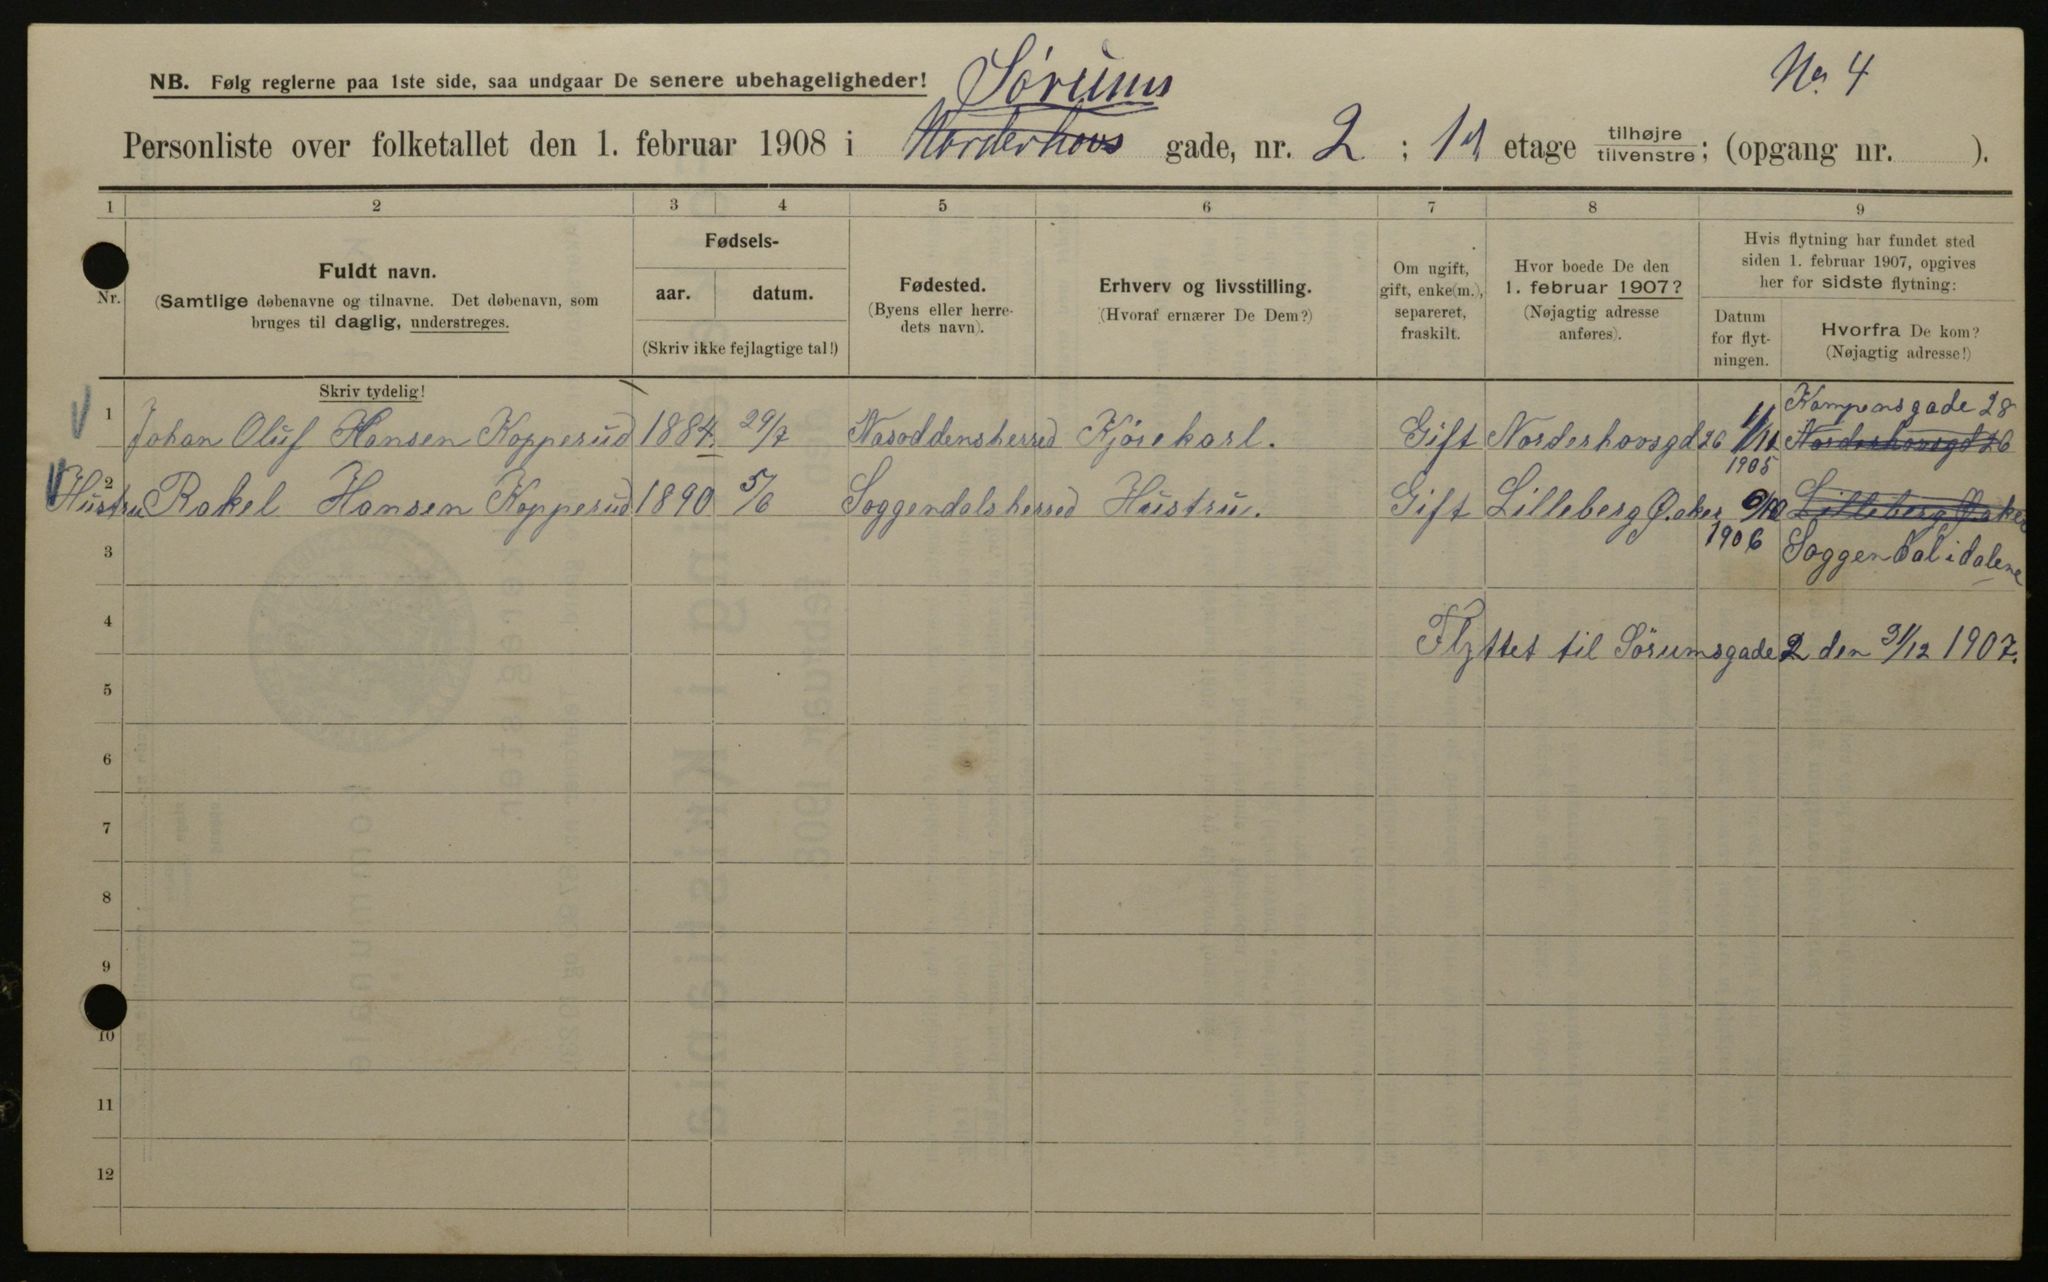 No 4
NB. Følg reglerne paa 1ste side, saa undgaar De senere ubehageligheder!
Sörums
Personliste over folketallet den 1. februar 1908 i Norderhovs gade, nr. 2 ; 1ste etage tilhøjre tilvenstre; (opgang nr. ).
1 2 3 4 5 6 7 8 9
Nr.
Fuldt navn.
(Samtlige døbenavne og tilnavne. Det døbenavn, som
bruges til daglig, understreges.
Fødsels-
aar. datum.
(Skriv ikke fejlagtige tal!)
Fødested.
(Byens eller herre-
dets navn).
Erhverv og livsstilling.
(Hvoraf ernærer De Dem?)
Om ugift,
gift, enke(m.),
separeret,
fraskilt.
Hvor boede De den
1. februar 1907?
(Nøjagtig adresse
anføres).
Hvis flytning har fundet sted
siden 1. februar 1907, opgives
her for sidste flytning:
Datum
for flyt-
ningen.
Hvorfra De kom?
(Nøjagtig adresse!)
Skriv tydelig!
Kampensgade 28
1 Johan Oluf Hansen Kopperud 1884. 29/7 Nasoddensherred Kjörekarl. Gift Norderhovsgd 26 Norderhovsgd 26
1905
2 Hustru Rakel Hansen Kopperud 1890 5/6 Soggendalsherred Hustru. Gift Lilleberg Ø.aker Lilleberg Ø.aker
1906 Soggendal i dalene
3
4 Flyttet til Sörumsgade 2 den 31/12 1907.
5
6
7
8
9
10
11
12